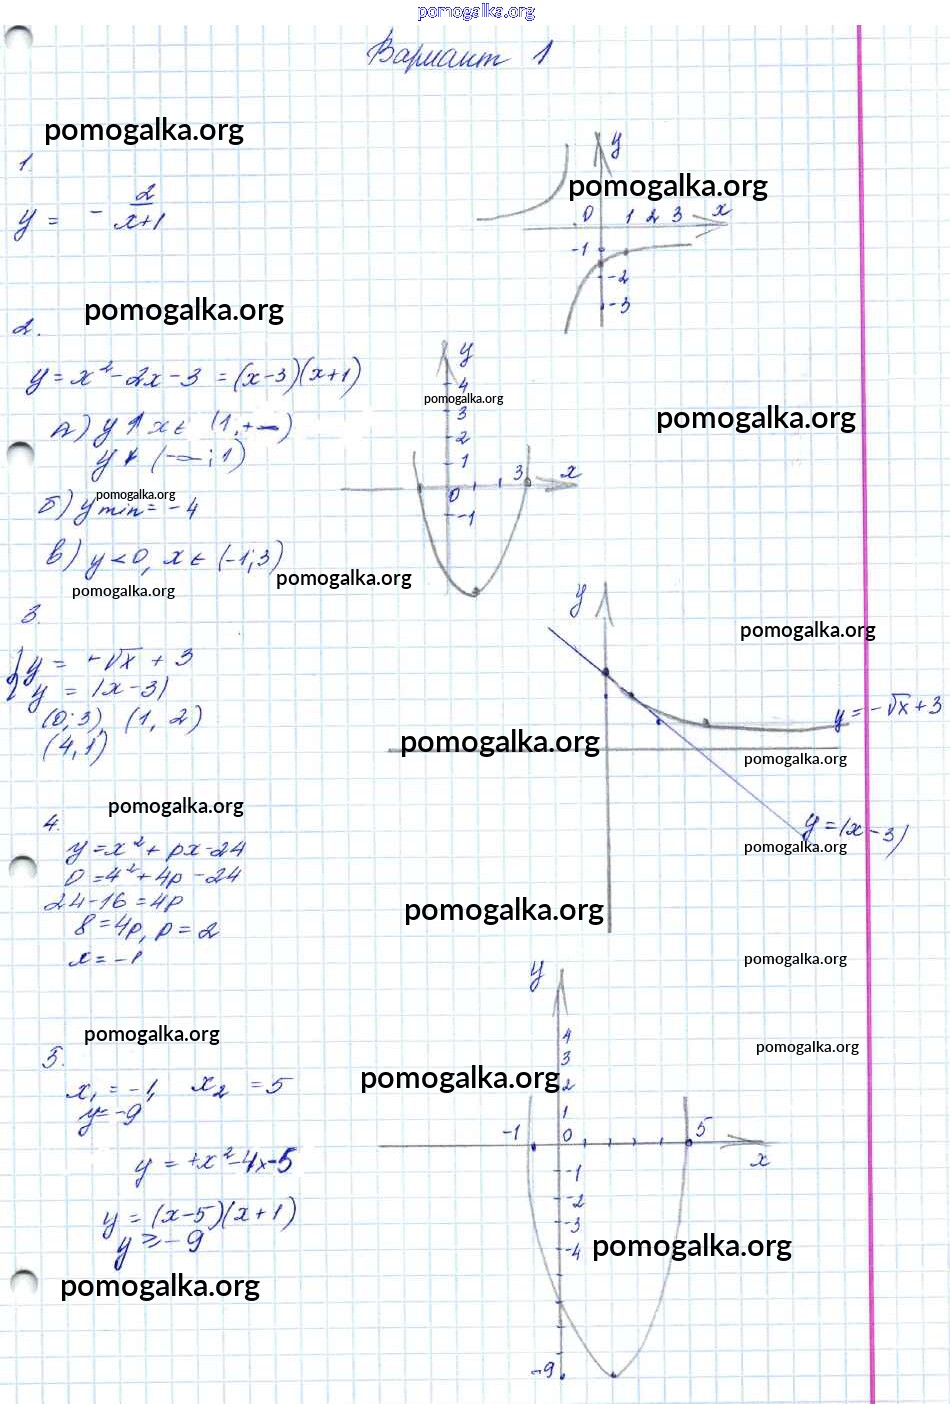 pomogalka.org
Вариант 1
pomogalka.org
1.
y = - 2/(x+1)
y
pomogalka.org
0 1 2 3 x
-1
-2
-3
pomogalka.org
2.
y = x² - 2x - 3 = (x-3)(x+1)
y
4
pomogalka.org
3
2
1
3 x
0
-1
pomogalka.org
а) y ↑ x ∈ (1, +∞)
y ↓ (-∞; 1)
pomogalka.org
б) y min = -4
в) y < 0, x ∈ (-1; 3)
pomogalka.org
pomogalka.org
3.
y
pomogalka.org
{ y = -√x + 3
y = |x-3|
(0; 3), (1, 2)
(4, 1)
y = -√x + 3
pomogalka.org
pomogalka.org
y = |x-3|
pomogalka.org
pomogalka.org
4.
y = x² + px - 24
0 = 4² + 4p - 24
24 - 16 = 4p
8 = 4p, p = 2
x = -1
pomogalka.org
pomogalka.org
y
4
3
2
1
-1 0 5
x
-1
-2
-3
-4
-9
pomogalka.org
pomogalka.org
5.
pomogalka.org
x₁ = -1, x₂ = 5
y = -9
y = +x² - 4x - 5
y = (x-5)(x+1)
y ≥ -9
pomogalka.org
pomogalka.org